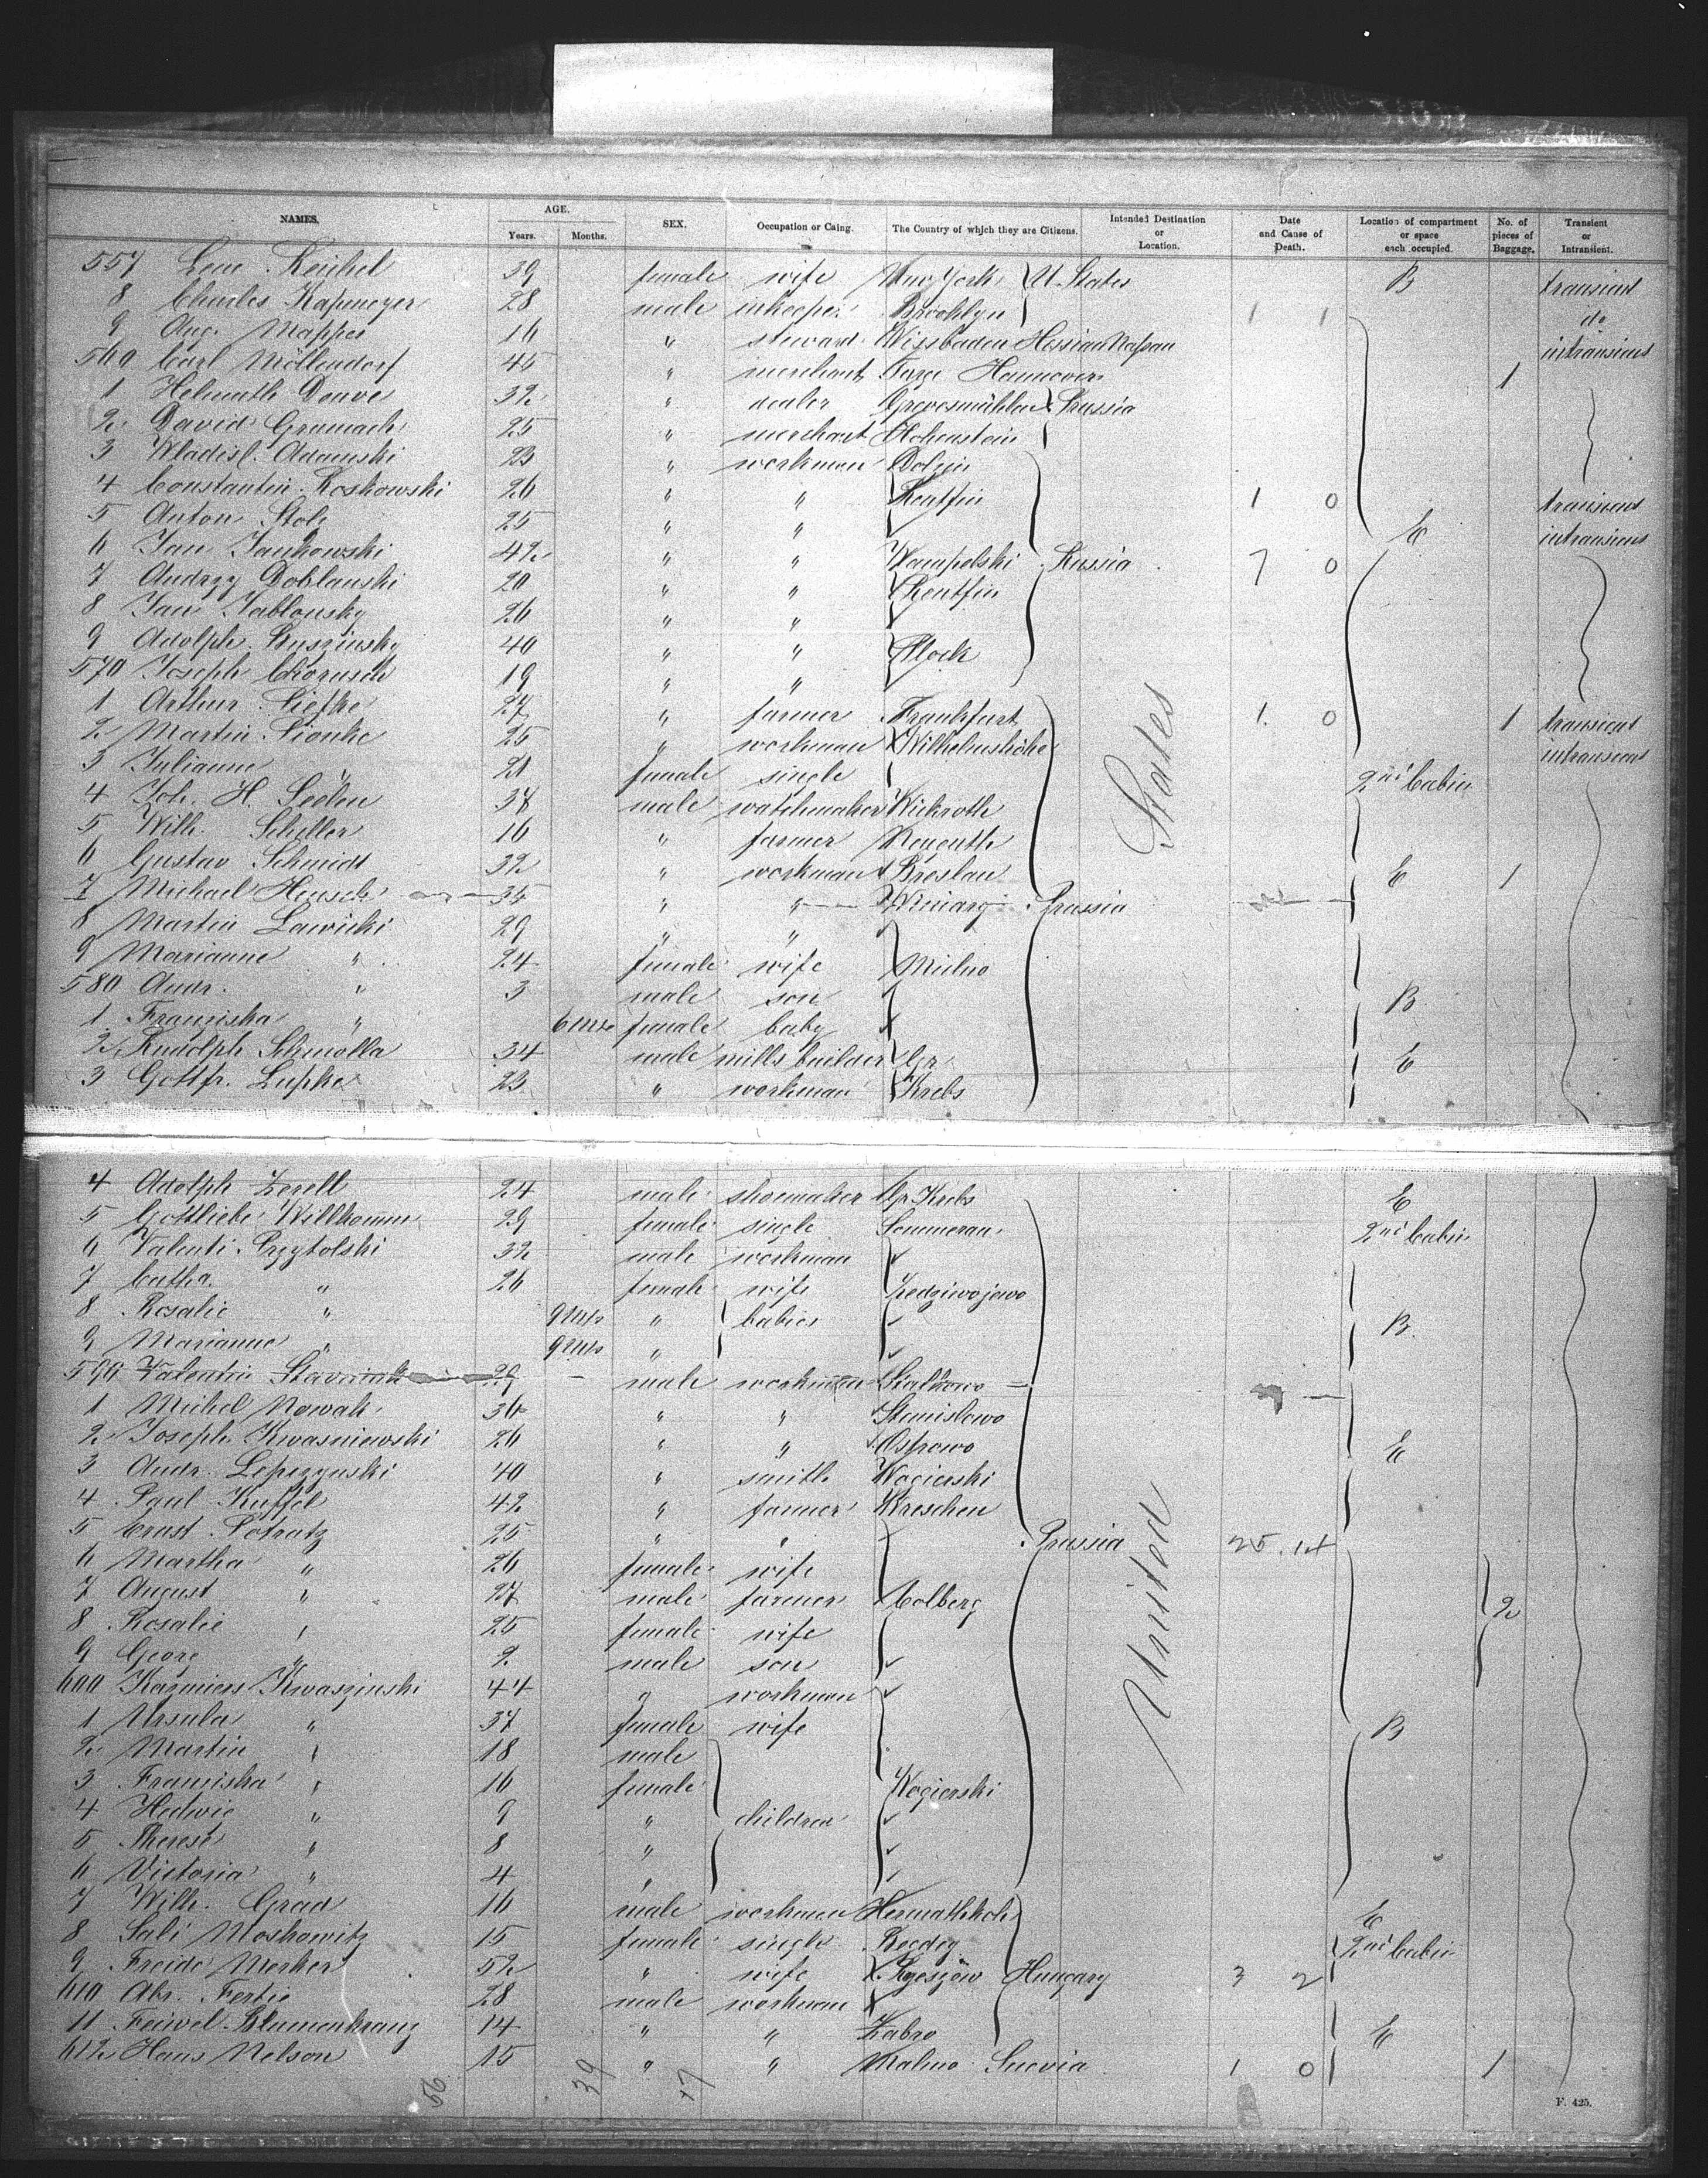 NAMES. AGE. SEX. Occupation or Caing. The Country of which they are Citizens. Intended Destination or Location. Date and Cause of Death. Location of compartment or space each occupied. No. of pieces of Baggage. Transient or Intransient.
Years. Months.
557 Lene Reichel 39 female wife New York U. States B transient
8 Charles Kapmeyer 28 male inkeeper Brooklyn 1 1 do
9 Aug. Mappes 16 " steward Wissbaden Hessian Nassau intransient
560 Carl Möllendorf 45 " merchant Hannover 1
1 Helmuth Douve 32 " dealer Grevesmühlen Prussia
2 David Gramach 25 " merchant Hohenstein
3 Wladisl. Adamski 23 " workman Dolzin
4 Constantin Koskowski 26 " " Rentfin 1 0 transient
5 Anton Stolz 25 " " E intransient
6 Jan Jankowski 42 " " Wampolski Russia 7 0
7 Andrzy Doblanski 20 " " Rentfin
8 Jan Jablonsky 26 " "
9 Adolph Ruszinsky 40 " " Plock
570 Joseph 19 " "
1 Arthur Liefke 27 " farmer Frankfurt 1 0 1 transient
2 Martin Lionke 25 " workman Wilhelmshöhe intransient
3 Julianne 21 female single 2nd Cabin
4 Joh. H. Seelen 37 male watchmaker Wickroth
5 Wilh. Schiller 16 " farmer
6 Gustav Schmidt 32 " workman Breslau E 1
7 Michael Hensch 35 " " Winiary Prussia
8 Martin Lawicki 29 " "
9 Marianne " 24 female wife Mielno
580 Andr. " 3 male son B
1 Franziska " 6 ms female baby
2 Rudolph Schmolla 34 male mills builder Gr E
3 Gottfr. Lupke 23 " workman Krebs
4 Adolph Zerell 24 male shoemaker Gr Krebs E
5 Gottliebe Willkomm 29 female single Sommerau 2nd Cabin
6 Valenti Przytolski 32 male workman
7 Catha. " 26 female wife
8 Rosalie " 9 ms " babies B
9 Marianne " 9 ms "
590 Valentin 29 male workman
1 Michel Nowak 36 " " Stanislewo
2 Joseph Kwasniewski 26 " " Ostrowo E
3 Andr. Lepczynski 40 " smith Wogierski
4 Paul Kuffel 42 " farmer Kreschen
5 Ernst Potratz 25 " " Prussia 25 . 14
6 Martha " 26 female wife
7 August " 27 male farmer Colberg 2
8 Rosalie " 25 female wife
9 Georg " 9 male son
600 Kazmiers Kwaszinski 44 " workman
1 Ursula " 37 female wife B
2 Martin " 18 male
3 Franziska " 16 female Wogierski
4 Hedwig " 9 " children
5 Therese " 8 "
6 Victoria " 4 "
7 Wilh. Grad 16 male workman E
8 Sali Moskowitz 15 female single 2nd Cabin
9 Freide Merker 52 " wife Rzeszow Hungary 3 2
610 Abr. Fertig 28 male workman
11 Feiwel Blumenkranz 14 " " Zabno E
612 Hans Nelson 15 " " Malmo Suevia 1 0 1
United States
56 39 17
F. 425.